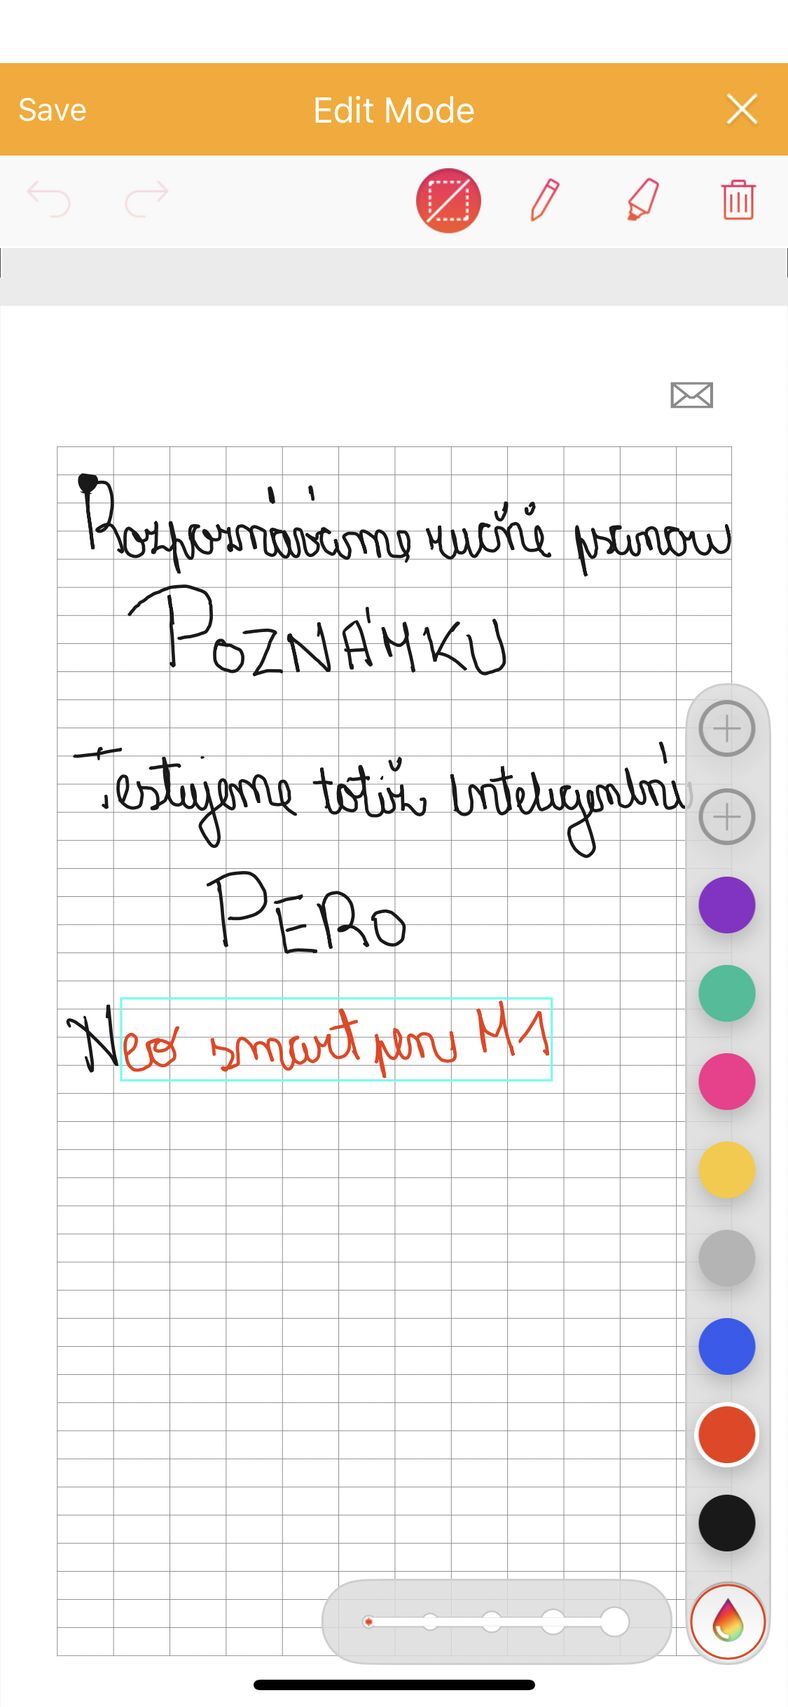 Save Edit Mode
Rozpoznáváme ručně psanou
POZNÁMKU
Testujeme totiž inteligentní
PERO
Neo smart pen M1